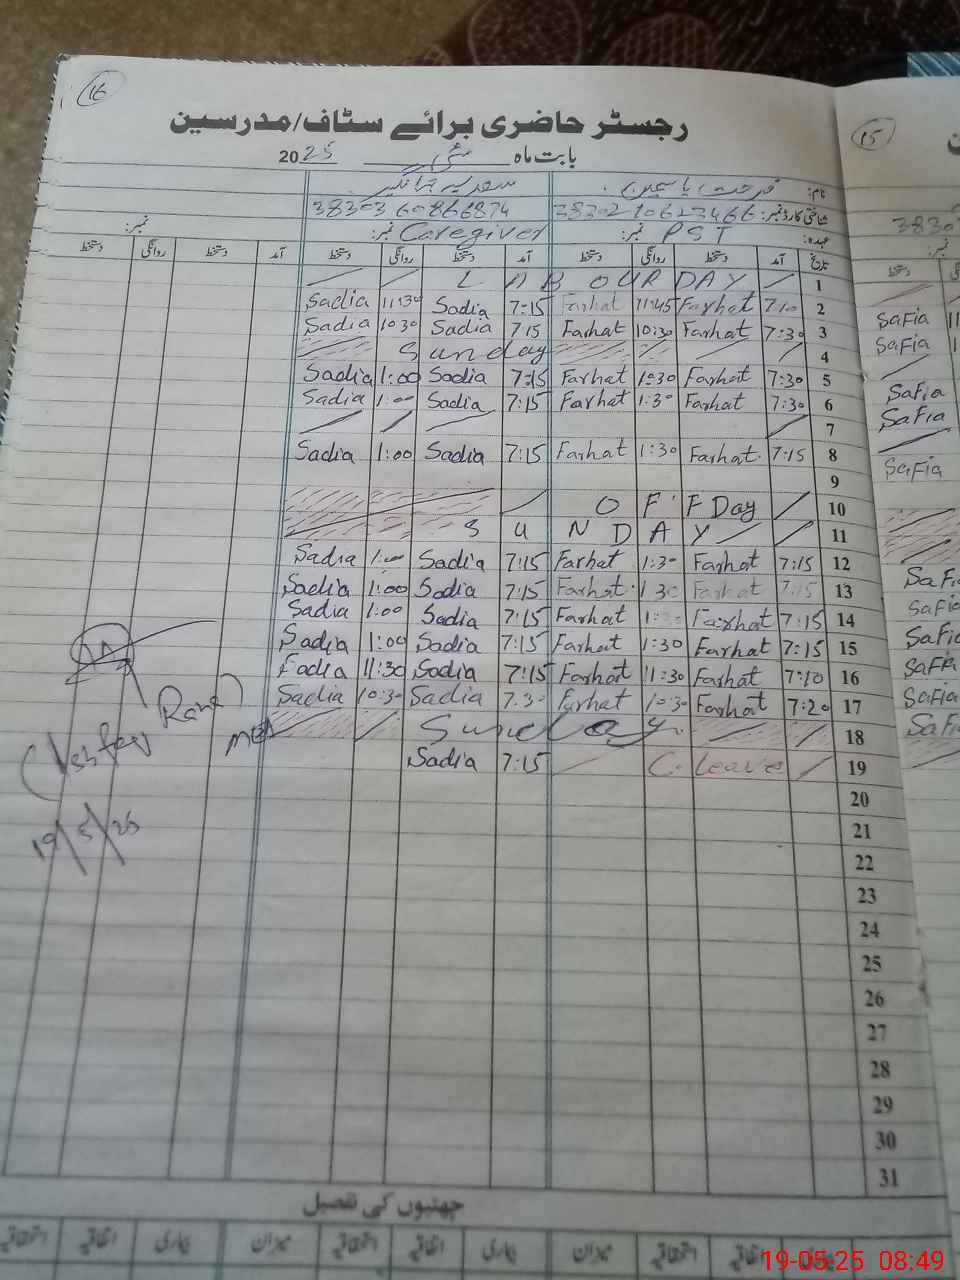 16
رجسٹر حاضری برائے سٹاف/مدرسین
بابت ماہ مئی 2025
15
نام: فرحت یاسمین سعدیہ جہانگیر
شناختی کارڈ نمبر: 3830210623466 3830360866874
عہدہ: PST نمبر: Caregiver نمبر: نمبر:
تاریخ آمد دستخط روانگی دستخط آمد دستخط روانگی دستخط آمد دستخط روانگی دستخط
LABOUR DAY 1
Sadia 11:30 Sadia 7:15 Farhat 11:45 Farhat 7:10 2
Sadia 10 30 Sadia 7 15 Farhat 10:30 Farhat 7:30 3 Safia
Sunday 4 Safia
Sadia 1:00 Sadia 7:15 Farhat 1:30 Farhat 7:30 5 Safia
Sadia 1:00 Sadia 7:15 Farhat 1:30 Farhat 7:30 6 Safia
7
Sadia 1:00 Sadia 7:15 Farhat 1:30 Farhat 7:15 8 Safia
9
OFF Day 10
SUNDAY 11
Sadia 1:00 Sadia 7:15 Farhat 1:30 Farhat 7:15 12 Safia
Sadia 1:00 Sadia 7:15 Farhat 1 30 Farhat 7:15 13 Safia
Sadia 1:00 Sadia 7:15 Farhat Farhat 7:15 14 Safia
Sadia 1:00 Sadia 7:15 Farhat 1:30 Farhat 7:15 15 Safia
Sadia 11:30 Sadia 7:15 Farhat 11:30 Farhat 7:10 16 Safia
Sadia 10:30 Sadia 7:30 Farhat 10:30 Farhat 7:20 17 Safia
Sunday 18
Sadia 7:15 C. Leave 19
Rana)
MEA
19/5/25
20
21
22
23
24
25
26
27
28
29
30
31
چھٹیوں کی تفصیل
میزان استحقاقیہ اتفاقیہ بیماری میزان استحقاقیہ اتفاقیہ بیماری میزان استحقاقیہ اتفاقیہ
19-05-25 08:49